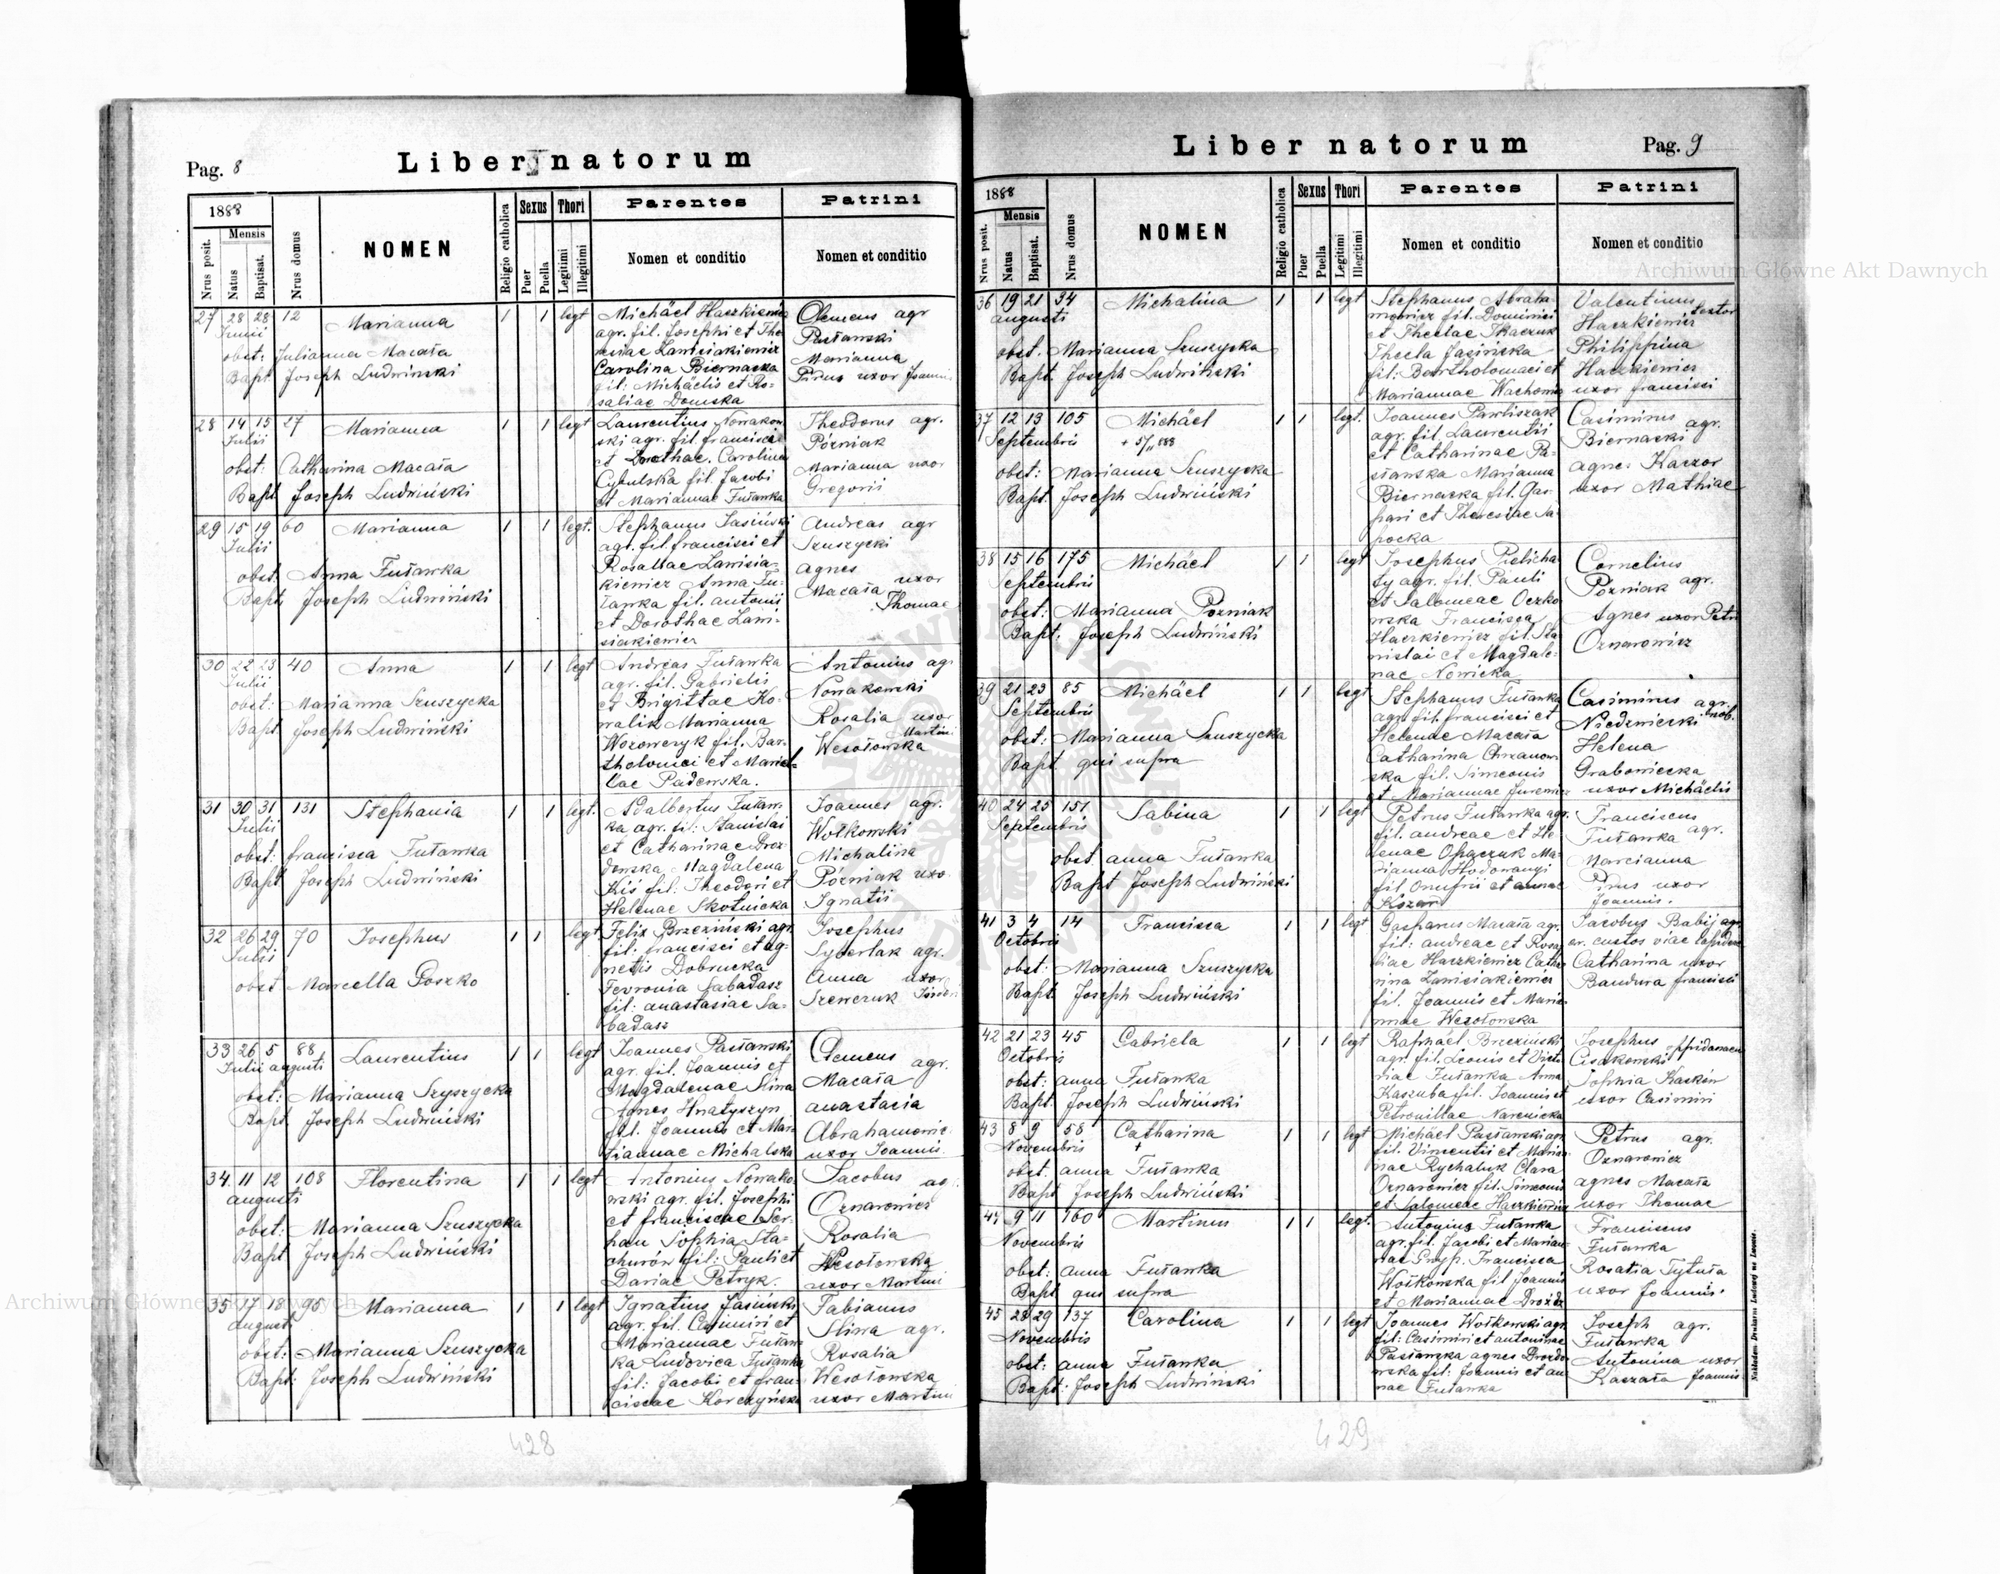 Pag. 8
Liber natorum
1888
Mensis
Nrus posit.
Natus
Baptisat.
Nrus domus
NOMEN
Religio catholica
Sexus
Puer
Puella
Thori
Legitimi
Illegitimi
Parentes
Nomen et conditio
Patrini
Nomen et conditio
27 28 28 12 Marianna 1 1 legt
Junii
obst: Julianna Macała
Bapt Joseph Ludwinski
Michäel Haczkiewicz
agr. fil. Josephi et The
resiae Lanisiakiewicz
Carolina Biernacka
fil: Michäelis et Ro-
saliae Domska
Clemens agr
Pasławski
Marianna
Pirus uxor Joannis
28 14 15 27 Marianna 1 1 legt
Julii
obst: Catharina Macała
Bapt Joseph Ludwiński
Laurentius Nowakow
ski agr. fil. francisci
et Dorothae. Carolina
Cybulska fil. Jacobi
et Mariannae Futawka
Theodorus agr.
Pózniak
Marianna uxor
Gregorii
29 15 19 60 Marianna 1 1 legt.
Julii
obst. Anna Fuławka
Bapt Joseph Ludwiński
Stephanus Jasiński
agr. fil. francisci et
Rosaliae Lanisia-
kiewicz Anna Fu-
ławka fil. antonii
et Dorothae Lani-
siakiewicz
Andreas agr
Szuszycki
agnes
Macała uxor
Thomae
30 22 23 40 Anna 1 1 legt
Julii
obst: Marianna Szuszycka
Bapt Joseph Ludwiński
Andreas Fuławka
agr. fil. Gabrielis
et Brigittae Ko-
walik Marianna
Wozowczyk fil. Bar-
tholomei et Mariel-
lae Padewska.
Antonius agr
Nowakowski
Rosalia uxor
Martini
Wesołowska
31 30 31 131 Stephania 1 1 legt.
Julii
obst: francisca Fuławka
Bapt Joseph Ludwiński
Adalbertus Fuław-
ka agr. fil: Stanislai
et Catharinae Droz-
dowska Magdalena
Kiś fil: Theodori et
Helenae Skotnicka
Joannes agr.
Wołkowski
Michalina
Pózniak uxo
Ignatii
32 26 29 70 Josephus 1 1 legt
Julii
obst Marcella Goszko
Felix Brzeziński agr
fil: francisci et ag-
netis Dobrucka
Fevronia Sabadasz
fil: anastasiae Sa-
badasz
Josephus
Syberlak agr.
Anna uxor
Szewczuk Isidori
33 26 5 88 Laurentius 1 1 legt
Julii augusti
obst: Marianna Szyszycka
Bapt Joseph Ludwiński
Joannes Pasławski
agr. fil. Joannis et
Magdalenae Sliwa
Agnes Hnatyszyn
fil. Joannis et Mar-
iannae Michalska
Clemens agr.
Macała
anastasia
Abrahamowic
uxor Joannis.
34. 11 12 108 Florentina 1 1 legt
augusti
obst: Marianna Szuszycka
Bapt Joseph Ludwiński
Antonius Nowako-
wski agr. fil. Josephi
et franciscae Ber-
han Sophia Sta-
churów fil: Pauli et
Dariae Petryk.
Jacobus ag
Oznarowicz
Rosalia
Wesołowska
uxor Martini
35 17 18 95 Marianna 1 1 legt
augusti
obst: Marianna Szuszycka
Bapt: Joseph Ludwiński
Ignatius Jasiński
agr. fil. Casimiri et
Mariannae Fuław-
ka Ludovica Fuławka
fil: Jacobi et fran-
ciscae Korczyńska
Fabianus
Sliwa agr.
Rosalia
Wesołowska
uxor Martini
428
Liber natorum
Pag. 9
1888
Mensis
Nrus posit.
Natus
Baptisat.
Nrus domus
NOMEN
Religio catholica
Sexus
Puer
Puella
Thori
Legitimi
Illegitimi
Parentes
Nomen et conditio
Patrini
Nomen et conditio
36 19 21 94 Michalina 1 1 legt
augusti
obst. Marianna Szuszycka
Bapt. Joseph Ludwiński
Stephanus Abraha
mowicz fil. Dominici
et Theclae Tkaczuk
Thecla Jasińska
fil: Bartholomaei et
Mariannae Wachowic
Valentinus
textor
Haczkiewicz
Philippina
Haczkiewicz
uxor francisci
37 12 13 105 Michäel 1 1 legt.
Septembris + 5/11 888
obst: Marianna Szuszycka
Bapt. Joseph Ludwiński
Joannes Pawliszak
agr. fil. Laurentii
et Catharinae Pa-
sławska Marianna
Biernacka fil. Gas-
pari et Theresiae Sa-
pocka
Casimirus
agr.
Biernacki
agnes Kaczor
uxor Mathiae
38 15 16 175 Michäel 1 1 legt
Septembris
obst: Marianna Pozniak
Bapt. Joseph Ludwiński
Josephus Pielicha-
ty agr. fil. Pauli
et Salomeae Oczko
wska Francisca
Haczkiewicz fil. Sta
nislai et Magdale-
nae Nowicka
Cornelius
Pózniak agr.
Agnes uxor Petri
Oznarowicz
39 21 23 85 Michäel 1 1 legt
Septembris
obst: Marianna Szuszycka
Bapt qui supra
Stephanus Fuławka
agr. fil. francisci et
Helenae Macała
Catharina Chrzanow
ska fil. Simeonis
et Mariannae Jurewicz
Casimirus agr.
nob.
Niedzwiecki
Helena
Grabowiecka
uxor Michäelis
40 24 25 151 Sabina 1 1 legt
Septembris
obst anna Fuławka
Bapt Joseph Ludwiński
Petrus Fuławka agr
fil. andreae et He-
lenae Opaczuk Ma-
rianna Hodowanyi
fil Onufrii et annae
Kozar
Franciscus
Fuławka agr.
Marcianna
Pirus uxor
Joannis.
41 3 4 14 Francisca 1 1 legt
Octobris
obst: Marianna Szuszycka
Bapt Joseph Ludwiński
Gasparus Macała agr.
fil: andreae et Rosa
liae Haczkiewicz Catha
rina Lanisiakiewicz
fil. Joannis et Maria
nnae Wesołowska
Jacobus Babij agr
er. custos viae lapideae
Catharina uxor
Bandura francisci
42 21 23 45 Gabriela 1 1 legt
Octobris
obst: anna Fuławka
Bapt. Joseph Ludwiński
Raphäel Brzeziński
agr. fil. Leonis et Victo
riae Fuławka Anna
Kaszuba fil. Joannis et
Petronillae Narcicka
Josephus
oppidaneus
Cisakowski
Sophia Kasków
uxor Casimiri
43 8 9 58 Catharina 1 1 legt
Novembris +
obst. anna Fuławka
Bapt Joseph Ludwiński
Michäel Pasławski agr
fil. Vincentii et Marian
nae Rychaluk Clara
Oznarowicz fil. Simeonis
et Salomeae Haczkiewicz
Petrus agr.
Oznarowicz
agnes Macała
uxor Thomae
44 9 11 160 Martinus 1 1 legt.
Novembris
obst: anna Fuławka
Bapt qui supra
Antonius Fuławka
agr. fil. Jacobi et Marian
nae Gnyp. Francisca
Wołkowska fil Joannis
et Mariannae Drozda
Franciscus
Fuławka
Rosalia Tytuła
uxor Joannis.
45 28 29 137 Carolina 1 1 legt
Novembris
obst: anna Fuławka
Bapt: Joseph Ludwiński
Joannes Wołkowski agr.
fil: Casimiri et antoninae
Pasławska agnes Drozdo
wska fil: Joannis et an
nae Fuławka
Joseph agr.
Fuławka
Antonina uxor
Kaczała Joannis
429
Nakładem Drukarni Ludowej we Lwowie.
Archiwum Główne Akt Dawnych
Archiwum Główne Akt Dawnych